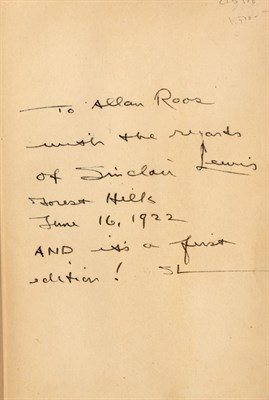 To Allan Roos
with the regards
of Sinclair Lewis
Forest Hills
June 16, 1922
AND it's a first
edition! SL